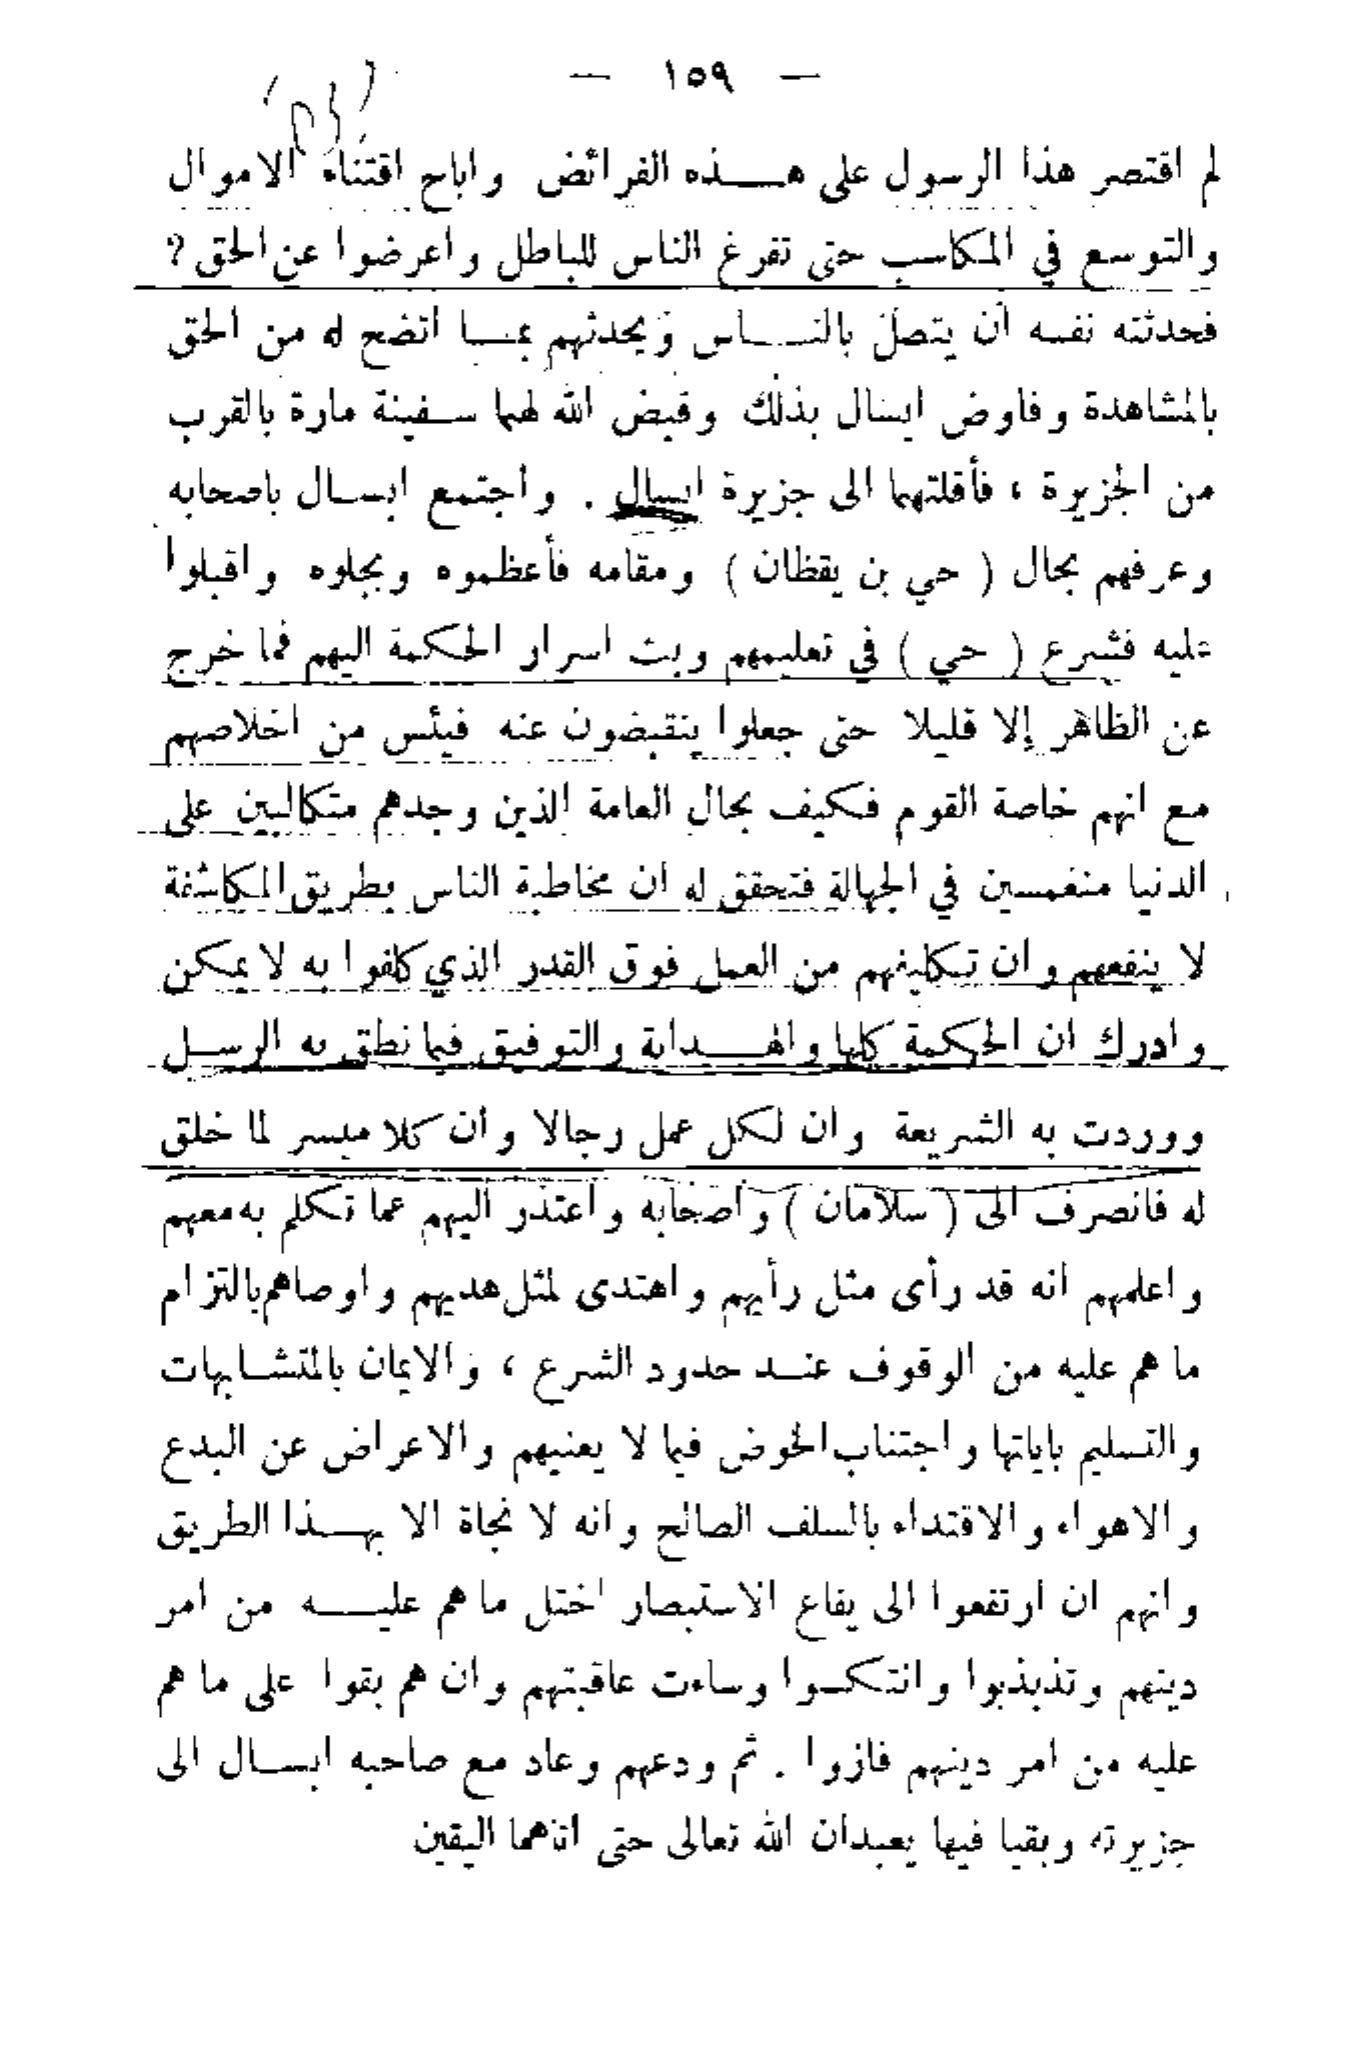 — ١٥٩ —
لم اقتصر هذا الرسول على هـــذه الفرائض واباح اقتناء الاموال
والتوسع في المكاسب حتى تفرغ الناس للباطل واعرضوا عن الحق ؟
فحدثته نفسه ان يتصل بالنـــاس ويحدثهم بمـــا اتضح له من الحق
بالمشاهدة وفاوض ابسال بذلك وقيض الله لهما سـفينة مارة بالقرب
من الجزيرة ، فأقلتهما الى جزيرة ابسال . واجتمع ابسـال باصحابه
وعرفهم بحال ( حي بن يقظان ) ومقامه فأعظموه وبجلوه واقبلوا
عليه فشرع ( حي ) في تعليمهم وبث اسرار الحكمة اليهم فما خرج
عن الظاهر إلا قليلا حتى جعلوا ينقبضون عنه فيئس من اخلاصهم
مع انهم خاصة القوم فكيف بحال العامة الذين وجدهم متكالبين على
الدنيا منغمسين في الجهالة فتحقق له ان مخاطبة الناس بطريق المكاشفة
لا ينفعهم وان تكليفهم من العمل فوق القدر الذي كلفوا به لا يمكن
وادرك ان الحكمة كلها والهـــداية والتوفيق فيما نطق به الرسـل
ووردت به الشريعة وان لكل عمل رجالا وان كلا ميسر لما خلق
له فانصرف الى ( سلامان ) واصحابه واعتذر اليهم عما تكلم به معهم
واعلمهم انه قد رأى مثل رأيهم واهتدى لمثل هديهم واوصاهم بالتزام
ما هم عليه من الوقوف عنـد حدود الشرع ، والايمان بالمتشـابهات
والتسليم باياتها واجتناب الخوض فيما لا يعنيهم والاعراض عن البدع
والاهواء والاقتداء بالسلف الصالح وانه لا نجاة الا بهـــذا الطريق
وانهم ان ارتفعوا الى يفاع الاستبصار اختل ما هم عليـــه من امر
دينهم وتذبذبوا وانتكسوا وساءت عاقبتهم وان هم بقوا على ما هم
عليه من امر دينهم فازوا . ثم ودعهم وعاد مع صاحبه ابسـال الى
جزيرته وبقيا فيها يعبدان الله تعالى حتى اتاهما اليقين